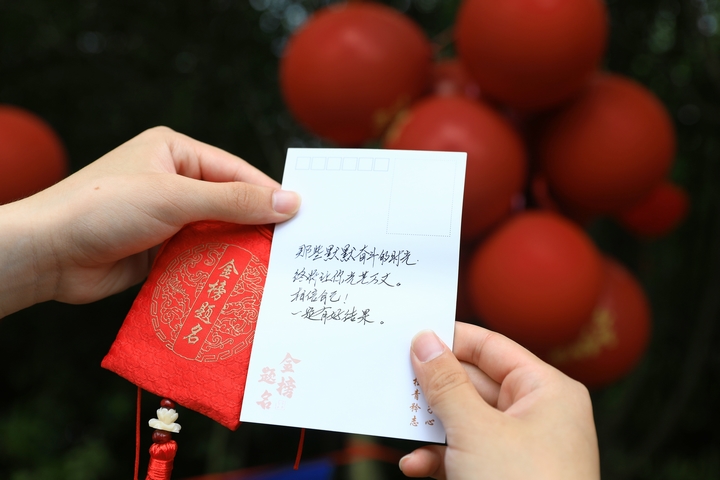 那些默默奋斗的时光.
终将让你光芒万丈。
相信自己！
一定有好结果。
金榜
题名
金榜题名